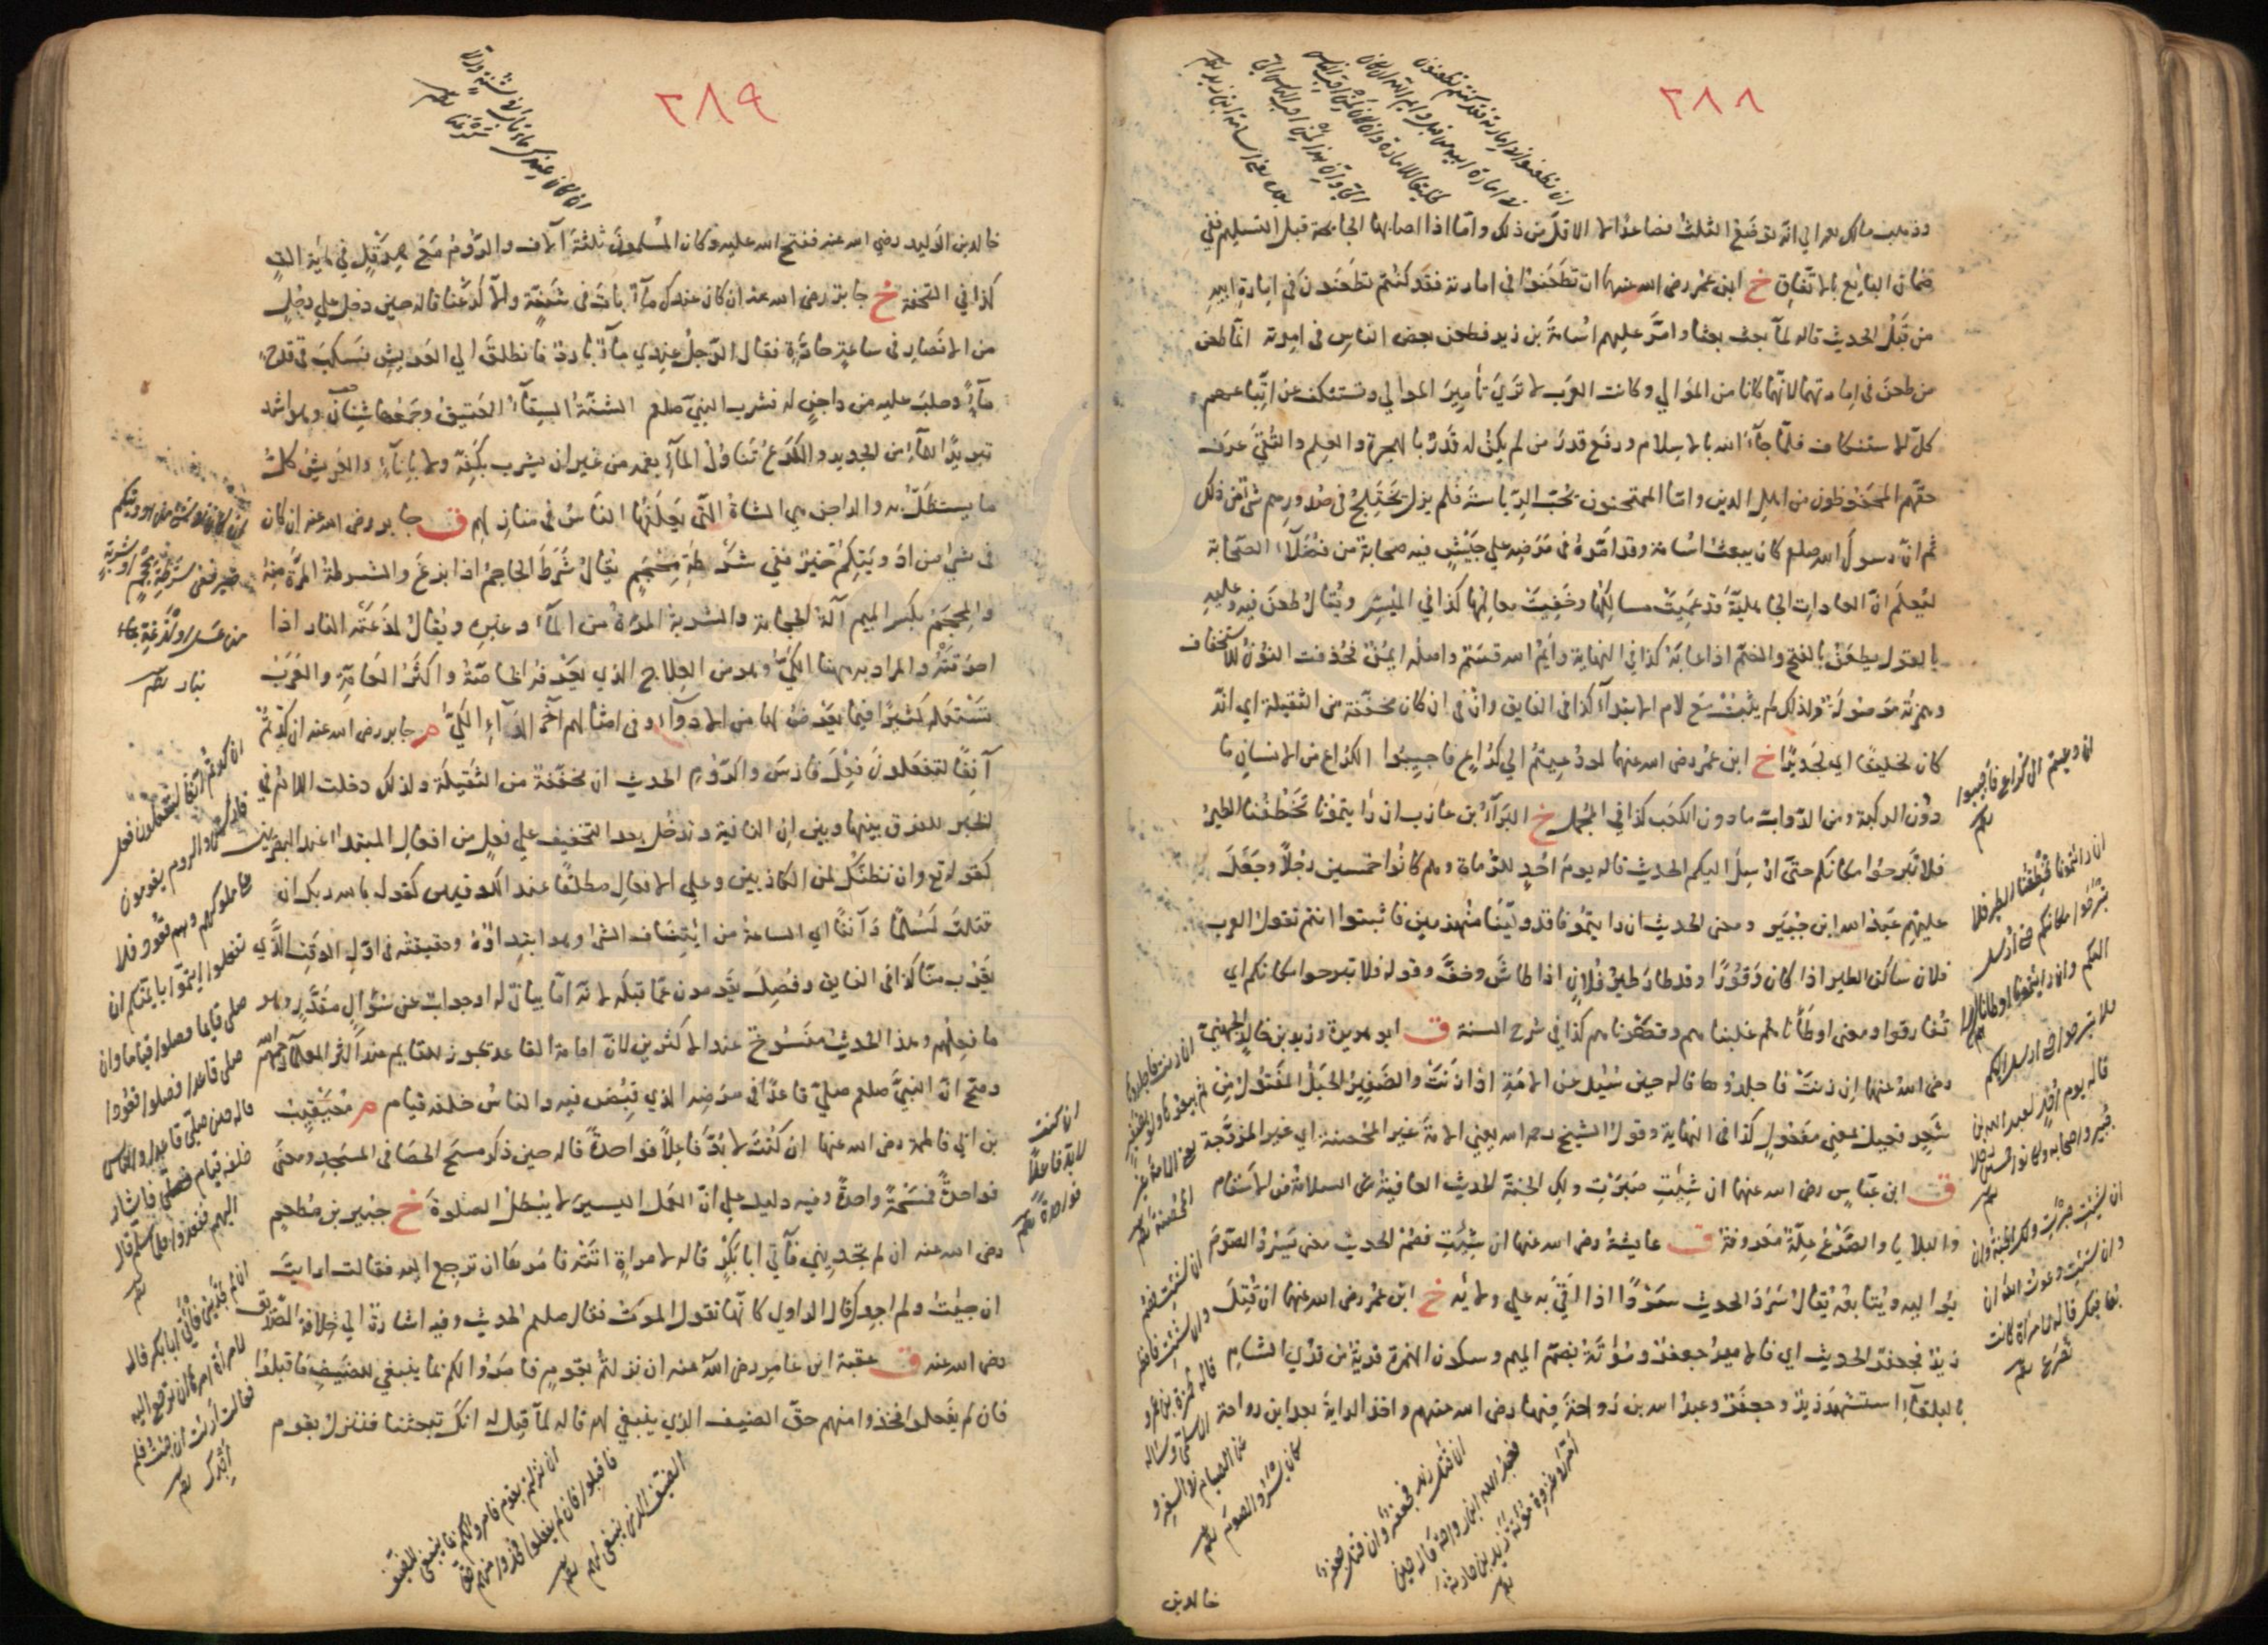 ٢٨٨
وذهب مالك رحمه الله الى انه يوضع الثلث فصاعدا لا الاقل من ذلك واما اذا اصابها الجائحة قبل التسليم ففي
ضمان البايع بالاتفاق خ ابن عمر رضى الله عنهما ان تطعنوا فى امارته فقد كنتم تطعنون فى امارة ابيه
من قبل الحديث قاله لما بعث بعثا وامر عليهم اسامة بن زيد فطعن بعض الناس فى امرته انما طعن
من طعن فى امارتهما لانهما كانا من الموالي وكانت العرب لا ترى تأمير الموالي وتستنكف عن اتباعهم
كل الاستنكاف فلما جاء الله بالاسلام ورفع قدر من لم يكن له قدر بالهجرة والعلم والتقى عرف
حقهم المحفوظون من اهل الدين واما الممتحنون بحب الرياسة فلم يزل يختلج فى صدورهم شئ من ذلك
ثم ان رسول الله صلعم كان يبعث اسامة وقد امره فى مرضه على جيش فيه صحابة من فضلاء الصحابة
ليعلم ان العادات الجاهلية قد عميت مسالكها وخفيت معالمها كذا في الميسر ويقال طعن فيه وعليه
بالقول يطعن بالفتح والضم اذا عابه كذا في النهاية وايم الله قسم واصله ايمن حذفت النون للاستخفاف
وهمزته موصولة ولذلك لم يثبت مع لام الابتداء كذا فى الفايق وان فى ان كان مخففة من الثقيلة اى انه
كان لخليقا اى لجديرا خ ابن عمر رضى الله عنهما لو دعيتم الى كراع فاجيبوا الكراع من الانسان ما
دون الركبة ومن الدواب ما دون الكعب كذا في المجمل خ البراء بن عازب ان رايتمونا تخطفنا الطير
فلا تبرحوا مكانكم حتى ارسل اليكم الحديث قاله يوم احد للرماة وهم كانوا خمسين رجلا وجعل
عليهم عبد الله ابن جبير ومعنى الحديث ان رايتمونا قد ولينا منهزمين فاثبتوا انتم تقول العرب
فلان ساكن الطير اذا كان وقورا وقد طار طير فلان اذا طاش وخف وقوله فلا تبرحوا مكانكم اى
تفارقوا ومعنى اوطأناهم غلبناهم وقهرناهم كذا في شرح السنة ق ابو هريرة وزيد بن خالد الجهنى
رضى الله عنهما ان زنت فاجلدوها قاله حين سئل عن الامة اذا زنت والضفير الحبل المفتول من
شعر فعيل بمعنى مفعول كذا فى النهاية وقول الشيخ رحمه الله يعني الامة غير المحصنة اى غير المزوجة
ق ابن عباس رضى الله عنهما ان شئت صبرت ولك الجنة الحديث العافية هى السلامة من الاسقام
والبلايا والصرع علة معروفة ق عايشة رضى الله عنها ان شئت فصم الحديث معنى يسرد الصوم
يواليه ويتابعه يقال سرد الحديث سردا اذا القى به على ولائه خ ابن عمر رضى الله عنهما ان قتل
زيد فجعفر الحديث اى فالامير جعفر ومؤتة بضم الميم وسكون الهمزة قرية من قرى الشام
بالبلقاء استشهد زيد وجعفر وعبد الله بن رواحة فيها رضى الله عنهم واخذ الراية بعد ابن رواحة
خالد بن
ان دعيتم الى كراع فاجيبوا
ان رايتمونا تخطفنا الطير فلا
تبرحوا مكانكم حتى ارسل
اليكم وان رايتمونا
فلا تبرحوا حتى ارسل اليكم
ان شئت صبرت ولك الجنة وان
شئت دعوت الله ان
يعافيك قاله لامراة كانت
تصرع
ان قتل زيد فجعفر وان قتل جعفر
فعبد الله ابن رواحة قاله حين
امر فى غزوة مؤتة زيد بن حارثة
٢٨٩
ان كان عندك ماء بات فى شنة والا
كرعنا
خالد بن الوليد رضى الله عنه ففتح الله عليه وكان المسلمون ثلثة آلاف والروم مع هرقل في مائة الف
كذا في التحفة خ جابر رضى الله عنه ان كان عندك ماء بات فى شنة والا كرعنا قاله حين دخل على رجل
من الانصار فى ساعة حارة فقال الرجل عندي ماء بارد فانطلق الى العريش فسكب فى قدح
ماء وحلب عليه من داجن له فشرب النبى صلعم الشنة السقاء العتيق وجمعها شنان وهو اشد
تبريدا للماء من الجديد والكرع تناول الماء بفمه من غير ان يشرب بكفه ولا باناء والعريش كل
ما يستظل به والداجن هى الشاة التى يعلفها الناس فى منازلهم ق جابر رضى الله عنه ان كان
فى شئ من ادويتكم خير ففي شرطة محجم يقال شرط الحاجم اذا بزغ والشرطة المرة منه
والمحجم بكسر الميم آلة الحجامة والشربة المرة من الماء وغيره ويقال لذعته النار اذا
احرقته والمراد به ههنا الكى وهو من العلاج الذي يعرفه الخاصة واكثر العامة والعرب
تستعمله كثيرا فيما يعرض لها من الادواء وفى امثالهم آخر الدواء الكى م جابر رضى الله عنه ان كدتم
آنفا لتفعلون فعل فارس والروم الحديث ان مخففة من الثقيلة ولذلك دخلت اللام فى
الخبر للفرق بينها وبين ان النافية وتدخل بعد التخفيف على فعل من افعال المبتدا عند البصريين
كقوله تع وان نظنك لمن الكاذبين وعلى الافعال مطلقا عند الكوفيين كقوله بالله ربك ان
قتلت لمسلما وآنفا اى الساعة من ايتناف الشئ وهو ابتداؤه وحقيقته فى اول الوقت الذى
يقرب منا كذا فى الفايق وفصل يقومون عما قبله لانه اما بيان له او جواب عن سؤال مقدر وهو
ما فعلهم وهذا الحديث منسوخ عند الاكثرين لان امامة القاعد تجوز للقايم عند اكثر العلماء رحمهم الله
وصح ان النبى صلعم صلى قاعدا فى مرضه الذي قبض فيه والناس خلفه قيام م معيقيب
بن ابى فاطمة رضى الله عنها ان كنت لا بد فاعلا فواحدة قاله حين ذكر مسح الحصا فى المسجد ومعنى
فواحدة فمسحة واحدة وفيه دليل على ان العمل اليسير لا يبطل الصلوة خ جبير بن مطعم
رضى الله عنه ان لم تجديني فأتي ابا بكر قاله لامراة اتته فامرها ان ترجع اليه فقالت ارايت
ان جيئت ولم اجدك قال الراوي كانها تقول الموت فقال صلعم الحديث وفيه اشارة الى خلافة الصديق
رضى الله عنه ق عقبة ابن عامر رضى الله عنه ان نزلتم بقوم فامروا لكم بما ينبغي للضيف فاقبلوا
فان لم يفعلوا فخذوا منهم حق الضيف الذي ينبغي لهم قاله لما قيل له انك تبعثنا فننزل بقوم
ان كنت
لا بد فاعلا
فواحدة
ان نزلتم بقوم فامروا لكم بما ينبغى للضيف
فاقبلوا فان لم يفعلوا فخذوا منهم حق
الضيف الذى ينبغى لهم